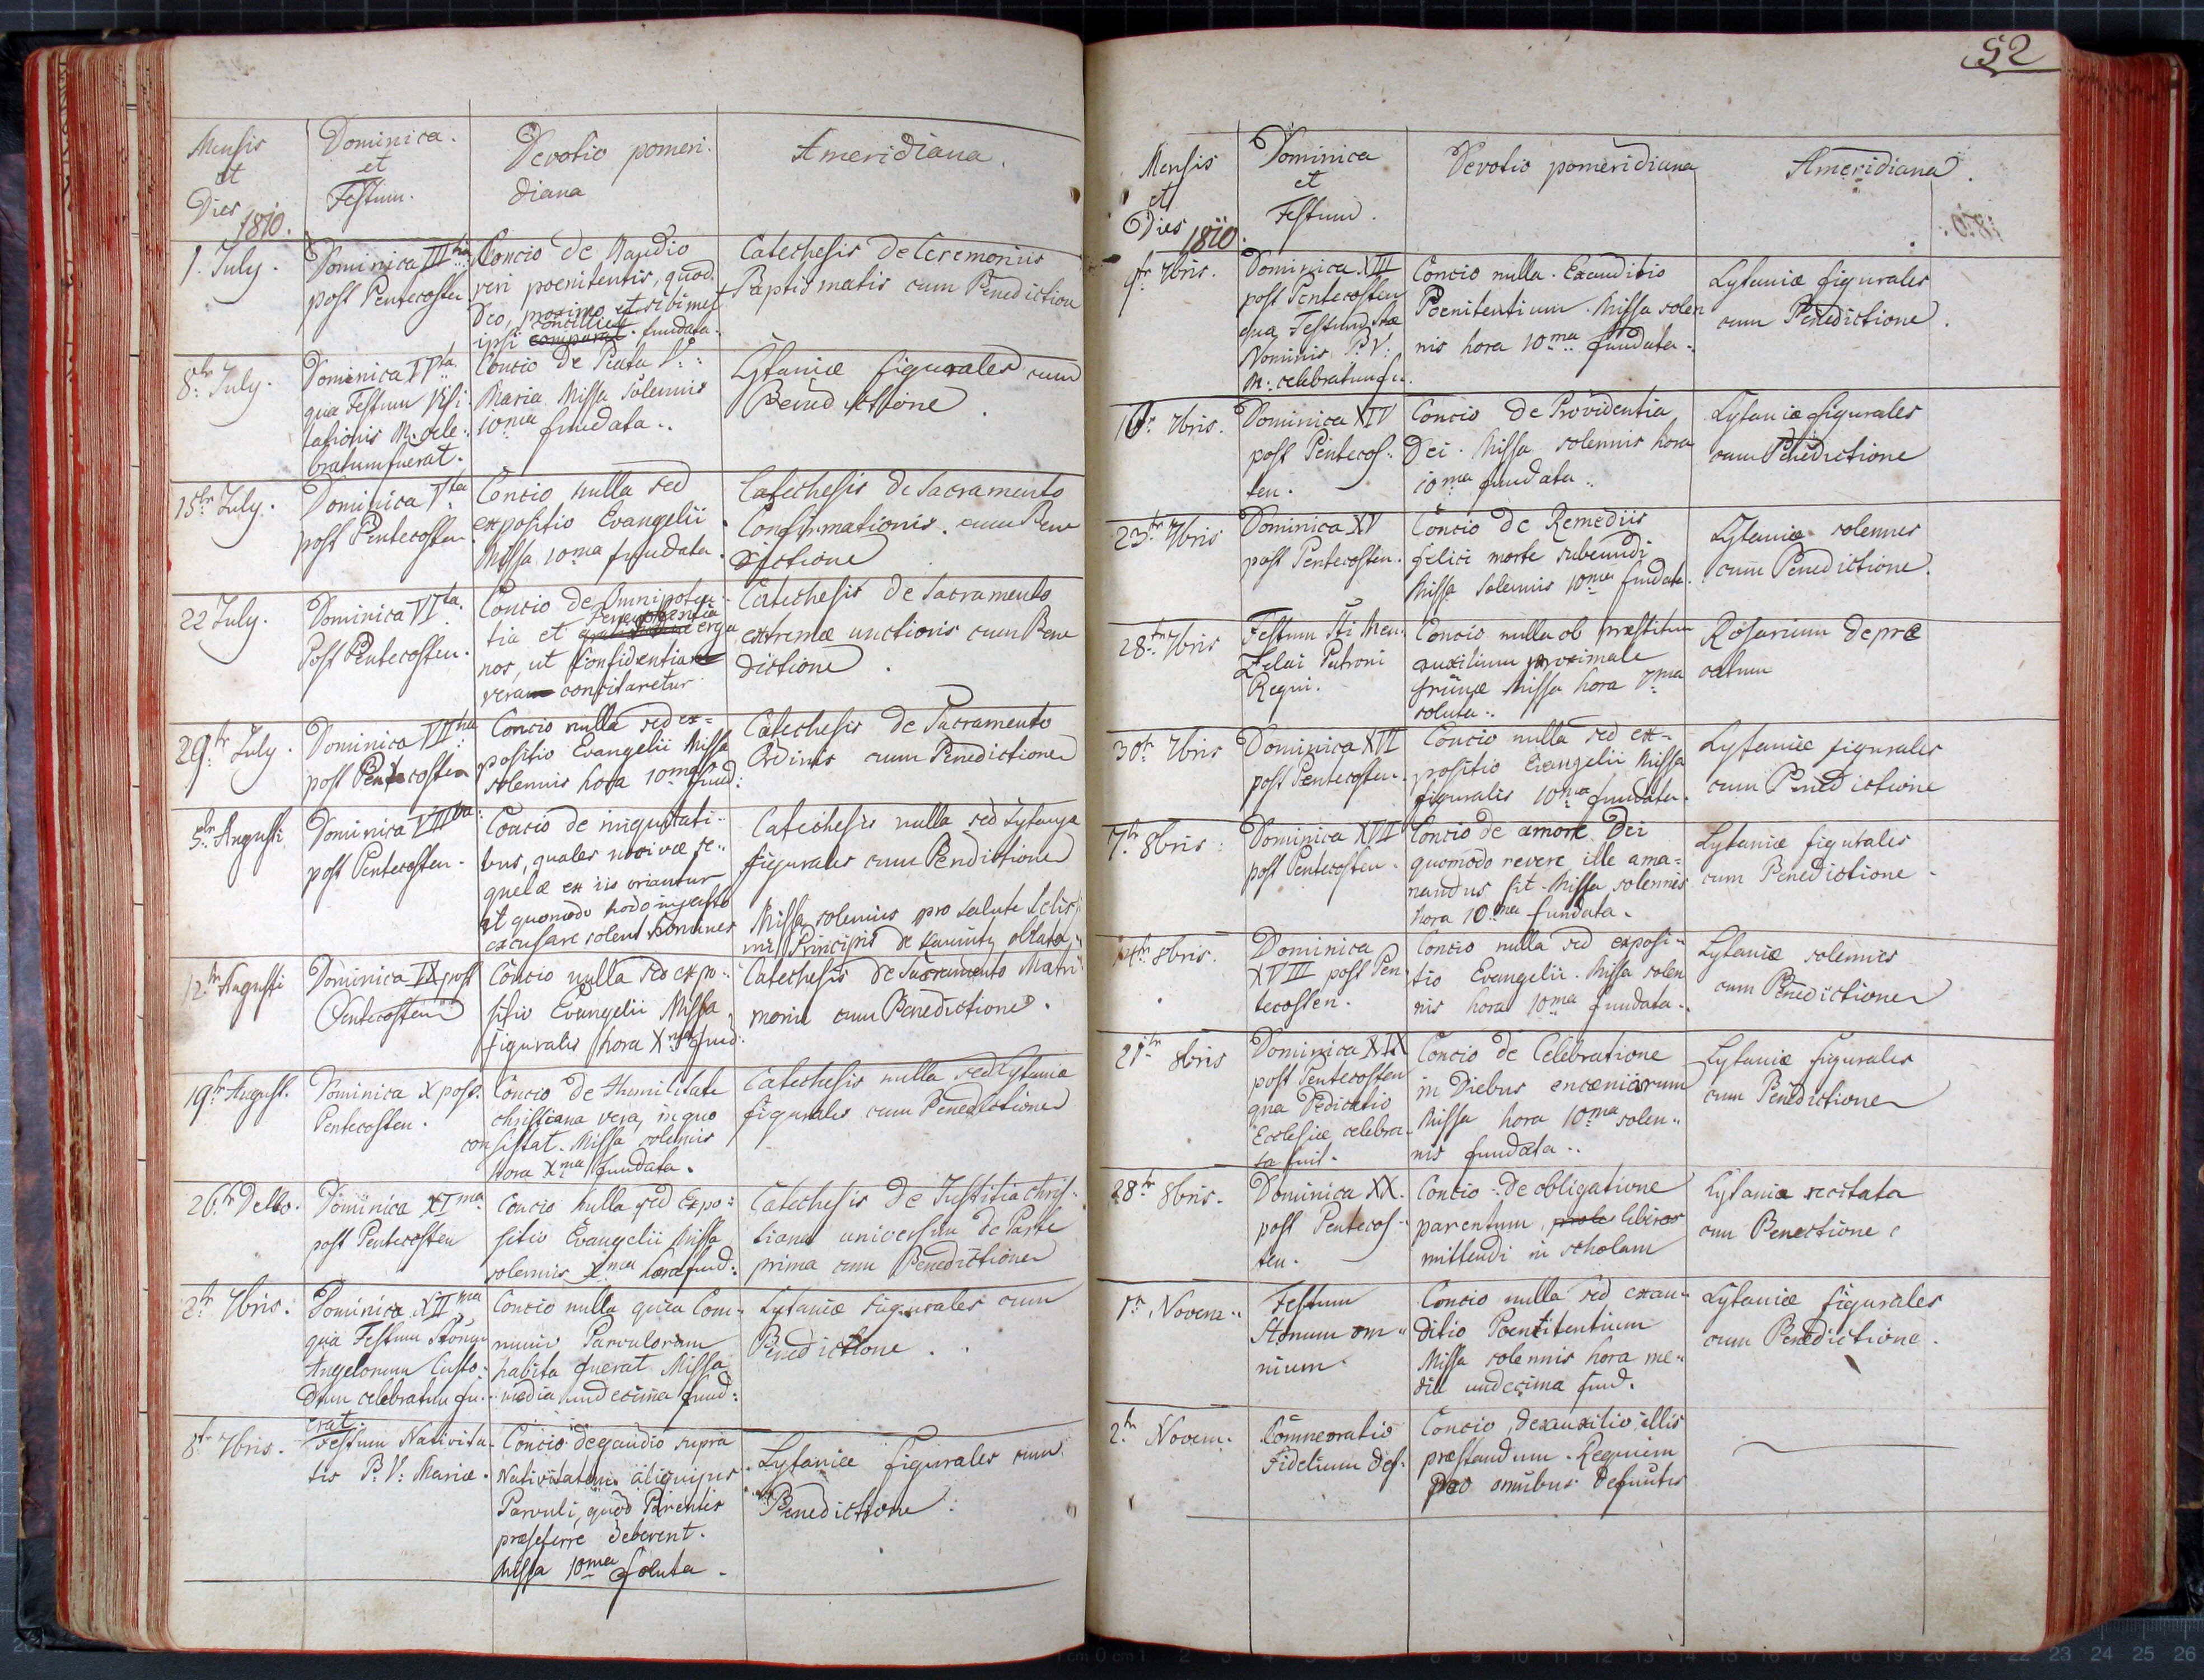 Mensis
et
Dies
1810.
Dominica.
et
Festum.
Devotio pomeri-
diana
Ameridiana.
1. July.
Dominica IIItia
post Pentecosten
Concio de Gaudio
veri poenitentis, quod
Deo, proximo et sibimet
ipsi comparat fundata.
Catechesis de Ceremoniis
Baptismatis cum Benediction
8tr July.
Dominica IVta
qua Festum Visi-
tationis M. cele-
bratum fuerat.
Concio de Beata V:
Maria Missa solemnis
10ma fundata..
Lytaniæ figurales cum
Benedictione.
15tr July.
Dominica Vta
post Pentecosten
Concio nulla sed
expositio Evangelii.
Missa 10ma fundata.
Catechesis de Sacramento
Confirmationis. cum Bene
dictione
22 July.
Dominica VIta.
Post Pentecosten.
Concio de Omnipoten-
tia et Benevolentia erga
nos, ut Confidentia
vera concitaretur
Catechesis de Sacramento
extremæ unctionis cum Bene
dictione.
29tr July.
Dominica VIIma
post Pentecosten
Concio nulla sed ex=
positio Evangelii Missa
solemnis hora 10ma fund:
Catechesis de Sacramento
Ordinis cum Benedictione
5tr Augusti
Dominica VIIIva
post Pentecosten.
Concio de iniquitati-
bus, quales nocivæ se-
quelæ ex iis oriantur
et quomodo hodo injuste
excusare solent homines
Catechesis nulla sed Lytanya
figurales cum Bendictione
Missa solemnis pro salute Celsis-
mi Principis de Kaunitz oblata
12tr Augusti
Dominica IX post
Pentecosten
Concio nulla sed expo-
sitio Evangelii Missa
figuralis hora Xma fund.
Catechesis de Sacramento Matri-
monii cum Benedictione.
19tr August.
Dominica X post.
Pentecosten.
Concio de Humilitate
christiana vera, in quo
consistat. Missa solemnis
Hora Xma fundata.
Catechesis nulla sed Lytaniæ
figurales cum Benedictione
26tr Detto.
Dominica XIma
post Pentecosten
Concio nulla sed Expo-
sitio Evangelii Missa
solemnis Xma hora fund:
Catechesis de Justitia chris-
tiana universim de Parte
prima cum Benedictione
2tr 7bris.
Dominica XIIma
qua Festum
Angelorum Custo-
dum celebratum fu-
erat.
Concio nulla quia Com-
munio Parvulorum
habita fuerat Missa
media undecima fund:
Lytaniæ figurales cum
Benedictione.
8tr 7bris.
Festum Nativita-
tis B. V: Mariæ.
Concio de gaudio supra
Nativitatem aliquijus
Parvuli, quod Parentis
præseferre deberent.
Missa 10ma soluta.
Lytaniæ figurales cum
Benedictione.
52
Mensis
et
Dies 1810.
Dominica
et
Festum.
Devotio pomeridiana
Ameridiana.
9tr 7bris.
Dominica XIII
post Pentecosten
qua Festum Stæ
Nominis B. V:
M: celebratum fu.
Concio nulla. Exauditio
Poenitentium. Missa solem
nis hora 10ma fundata.
Lytaniæ figurales
cum Benedictione.
16tr 7bris.
Dominica XIV
post Pentecos-
ten.
Concio de Providentia
Dei. Missa solemnis hora
10ma fundata.
Lytaniæ figurales
cum Benedictione
23tr 7bris
Dominica XV
post Pentecosten.
Concio de Remediis
felici morte subeundi
Missa solemnis 10ma fundata.
Lytaniæ solemnes
cum Benedictione.
28tr 7bris
Festum Sti Wen-
zelai Patroni
Regni.
Concio nulla ob præstitum
auxilium proximale
Missa hora 7ma
soluta.
Rosarium depræ
catum
30tr 7bris
Dominica XVI
post Pentecosten.
Concio nulla sed ex-
positio Evangelii Missa
figuralis 10ma fundata.
Lytaniæ figurales
cum Benedictione
7tr 8bris.
Dominica XVII
post Pentecosten.
Concio de amore Dei
quomodo revere ille ama=
nandus sit. Missa solennis
hora 10ma fundata.
Lytaniæ figurales
cum Benedictione.
14tr 8bris.
Dominica
XVIII post Pen-
tecosten.
Concio nulla sed exposi-
tio Evangelii. Missa solen
nis hora 10ma fundata.
Lytaniæ solemnes
cum Benedictione
21tr 8bris
Dominica XIX
post Pentecosten
qua Dedicatio
Ecclesiæ celebra-
ta fuit.
Concio de Celebratione
in Diebus encæniorum
Missa hora 10ma solen-
nis fundata..
Lytaniæ figurales
cum Benedictione
28tr 8bris.
Dominica XX.
post Pentecos-
ten.
Concio de obligatione
parentum prole liberos
mittendi in scholam
Lytaniæ recitata
cum Benectione
1tr Novem.
Festum
Storum om-
nium.
Concio nulla sed exau-
ditio Poenitentium
Missa solemnis hora me-
dia undecima fund.
Lytaniæ figurales
cum Benedictione.
2tr Novem.
Com̄emoratio
Fidelium Def.
Concio, de auxilio illis
præstandum. Requiem
pro omnibus Defunctis